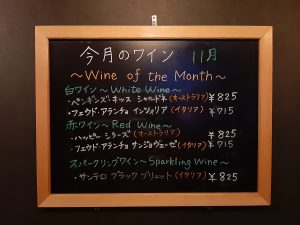 今月のワイン 11月
～Wine of the Month～
白ワイン～White Wine～
・ペンギンズ・キッス シャルドネ(オーストラリア) ¥825
・フェウド・アランチョ インツォリア(イタリア) ¥715
赤ワイン～Red Wine～
・ハッピー シラーズ(オーストラリア) ¥825
・フェウド・アランチョ サンジョヴェーゼ(イタリア) ¥715
スパークリングワイン～Sparkling Wine～
・サンテロ ブラック ブリュット(イタリア) ¥825